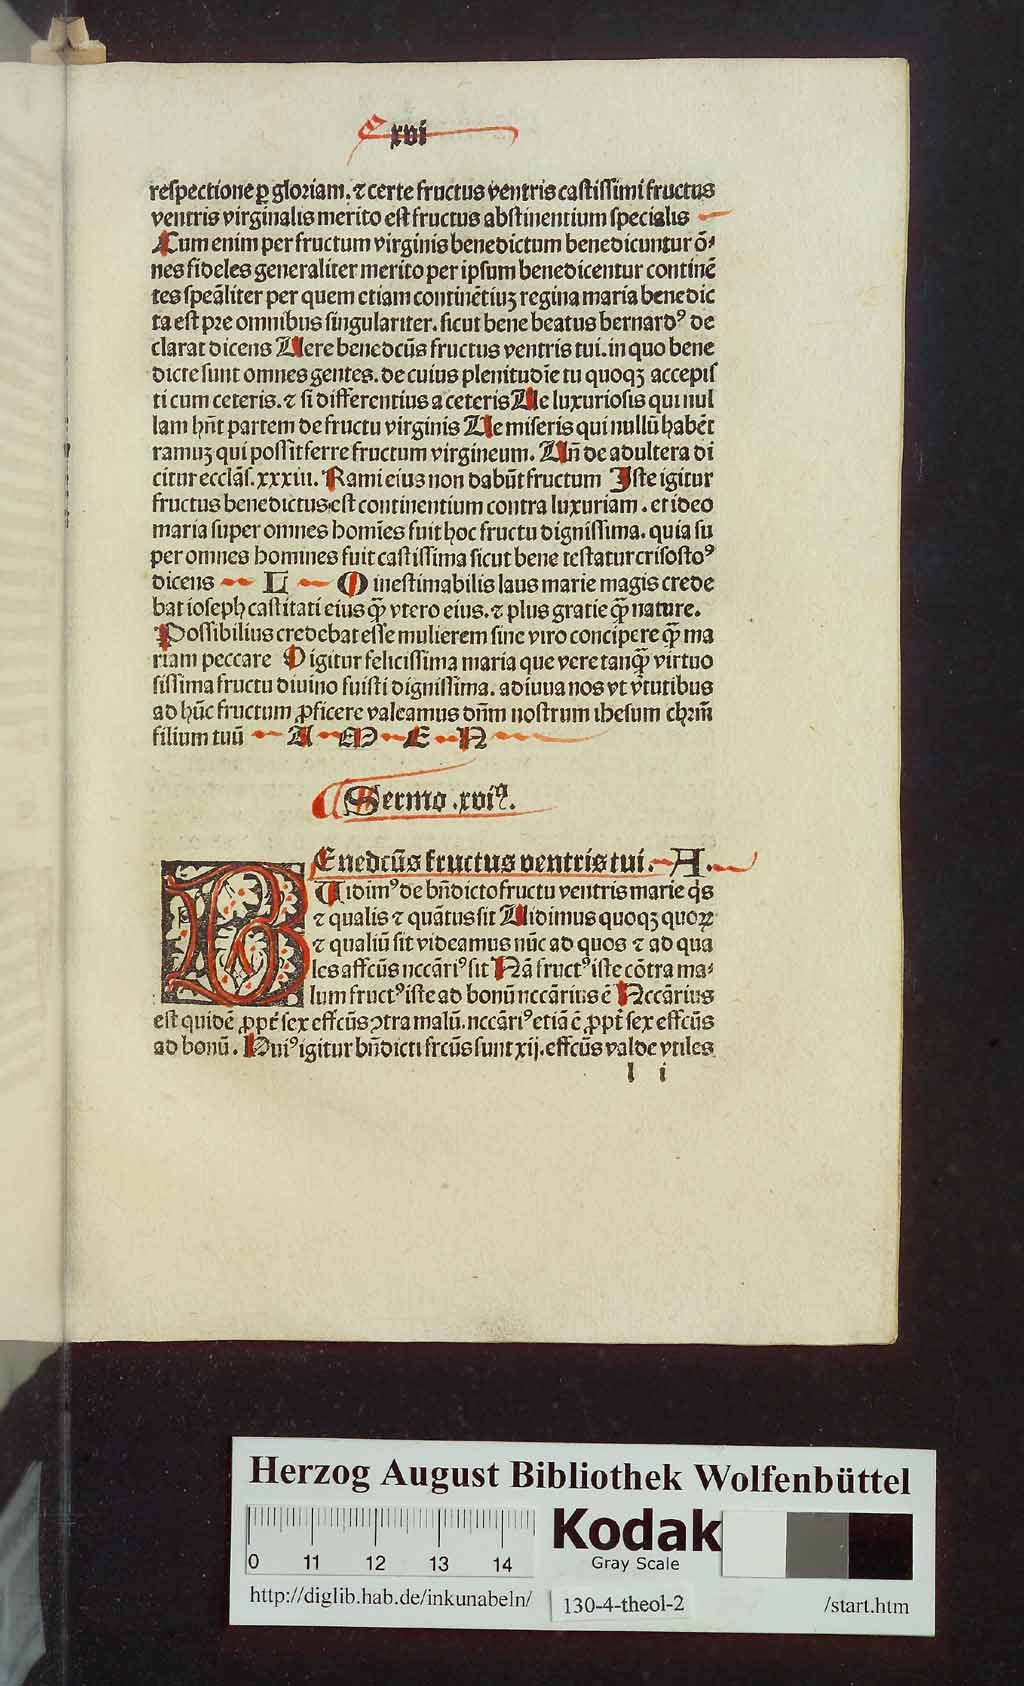 xvi
respectione ꝑ gloriam. ⁊ certe fructus ventris castissimi fructus
ventris virginalis merito est fructus abstinentium specialis
Cum enim per fructum virginis benedictum benedicuntur õ⸗
nes fideles generaliter merito per ipsum benedicentur continẽ
tes speãliter per quem etiam continẽtiuꝫ regina maria benedic
ta est pre omnibus singulariter. sicut bene beatus bernardꝰ de
clarat dicens Vere benedcũs fructus ventris tui. in quo bene
dicte sunt omnes gentes. de cuius plenitudĩe tu quoqꝫ accepis
ti cum ceteris. ⁊ si differentius a ceteris Ve luxuriosis qui nul
lam hñt partem de fructu virginis Ve miseris qui nullũ habẽt
ramuꝫ qui possit ferre fructum virgineum. Vñ de adultera di
citur ecclãs. xxxiii. Rami eius non dabũt fructum Iste igitur
fructus benedictus est continentium contra luxuriam. et ideo
maria super omnes homĩes fuit hoc fructu dignissima. quia su
per omnes homines fuit castissima sicut bene testatur crisostoꝰ
dicens L O inestimabilis laus marie magis crede
bat ioseph castitati eius q̃ꝫ vtero eius. ⁊ plus gratie q̃ꝫ nature.
Possibilius credebat esse mulierem sine viro concipere q̃ꝫ ma
riam peccare O igitur felicissima maria que vere tanq̃ꝫ virtuo
sissima fructu diuino fuisti dignissima. adiuua nos vt v̾tutibus
ad hũc fructum ꝓficere valeamus dñm nostrum ihesum chrm̃
filium tuũ A M E N
Sermo .xviꝰ.
BEnedcũs fructus ventris tui. A.
Vidimꝰ de bñdicto fructu ventris marie q̇s
⁊ qualis ⁊ quãtus sit Vidimus quoqꝫ quoꝝ
⁊ qualiũ sit videamus nũc ad quos ⁊ ad qua
les affcũs nccãriꝰ sit Nã fructꝰ iste cõtra ma⸗
lum fructꝰ iste ad bonũ nccãrius ẽ Nccãrius
est quidẽ ꝓpt̃ sex effcũs ꝯtra malũ. nccãriꝰ etiã ẽ ꝓpt̃ sex effcũs
ad bonũ. Huiꝰ igitur bñdicti frcũs sunt xij. effcũs valde vtiles
l i
Herzog August Bibliothek Wolfenbüttel
0 11 12 13 14
Kodak
Gray Scale
http://diglib.hab.de/inkunabeln/ 130-4-theol-2 /start.htm